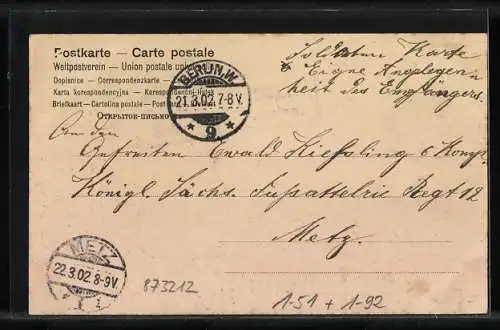 Postkarte — Carte postale
Weltpostverein — Union postale
Dopisnice — Correspondenzkarte
Karta korespondencyjna — Korespondenti
Briefkart — Cartolina postale — Post
Открытое письмо
BERLIN.W.
21.3.02.7-8V.
* 9 *
Soldaten Karte
Eigne Angelegen
heit des Empfängers.
An den
Gefreiten Ewald Kiessling 6 Komp.
Königl. Sächs. Regt 12
Metz.
METZ
22.3.02.8-9V.
873212
1-51 + 1-92